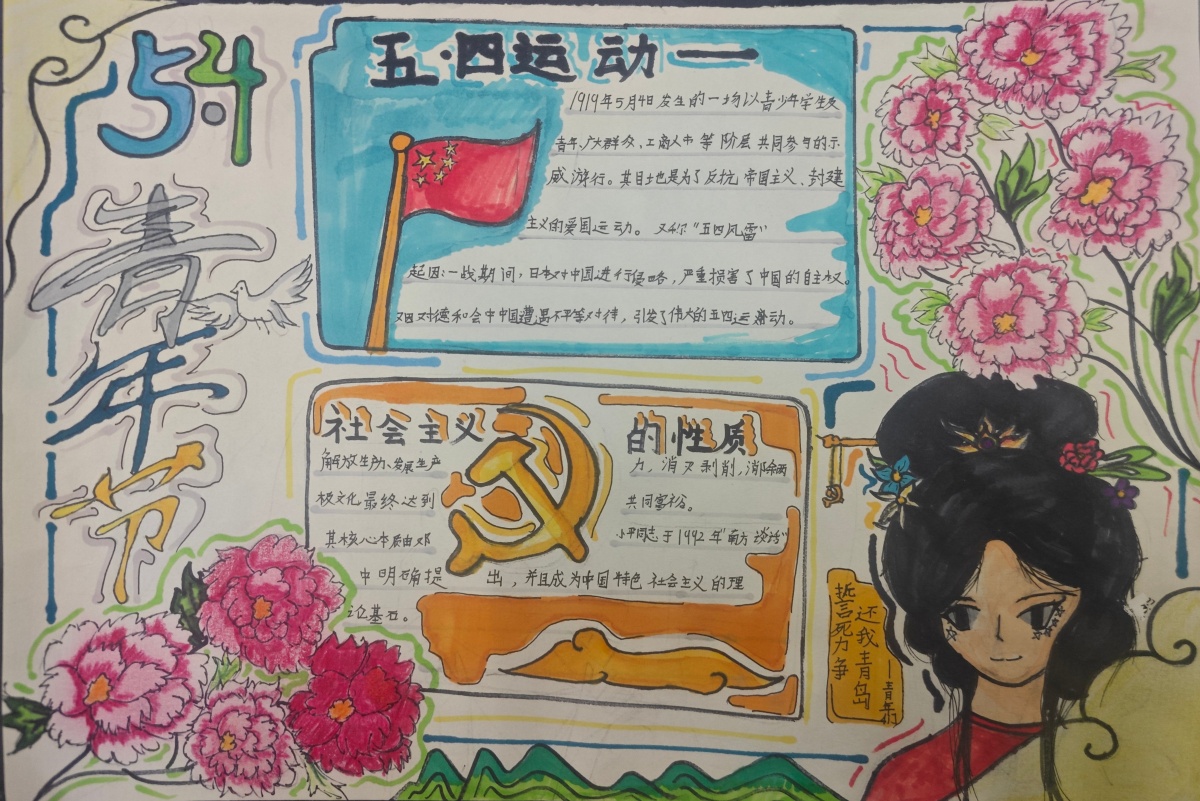 5.4
青年节
五·四运动一
1919年5月4日发生的一场以青少年学生及
青年、广大群众、工商人市等阶层共同参与的示
威游行。其目土也是为了反抗帝国主义、封建
主义的爱国运动。又称“五四风雷”
起因:一战期间,日本对中国进行侵略,严重损害了中国的自主权。
对德和会中中国遭遇不平等对待,引发了伟大的五四运动。
社会主义的性质
解放生力、发展生产力,消灭剥削,消除两
极文化最终达到共同富裕。
其核心本质由邓小平同志于1992年“南方谈话”
中明确提出,并且成为中国特色社会主义的理
论基石。
誓死力争
还我青岛
——青年们